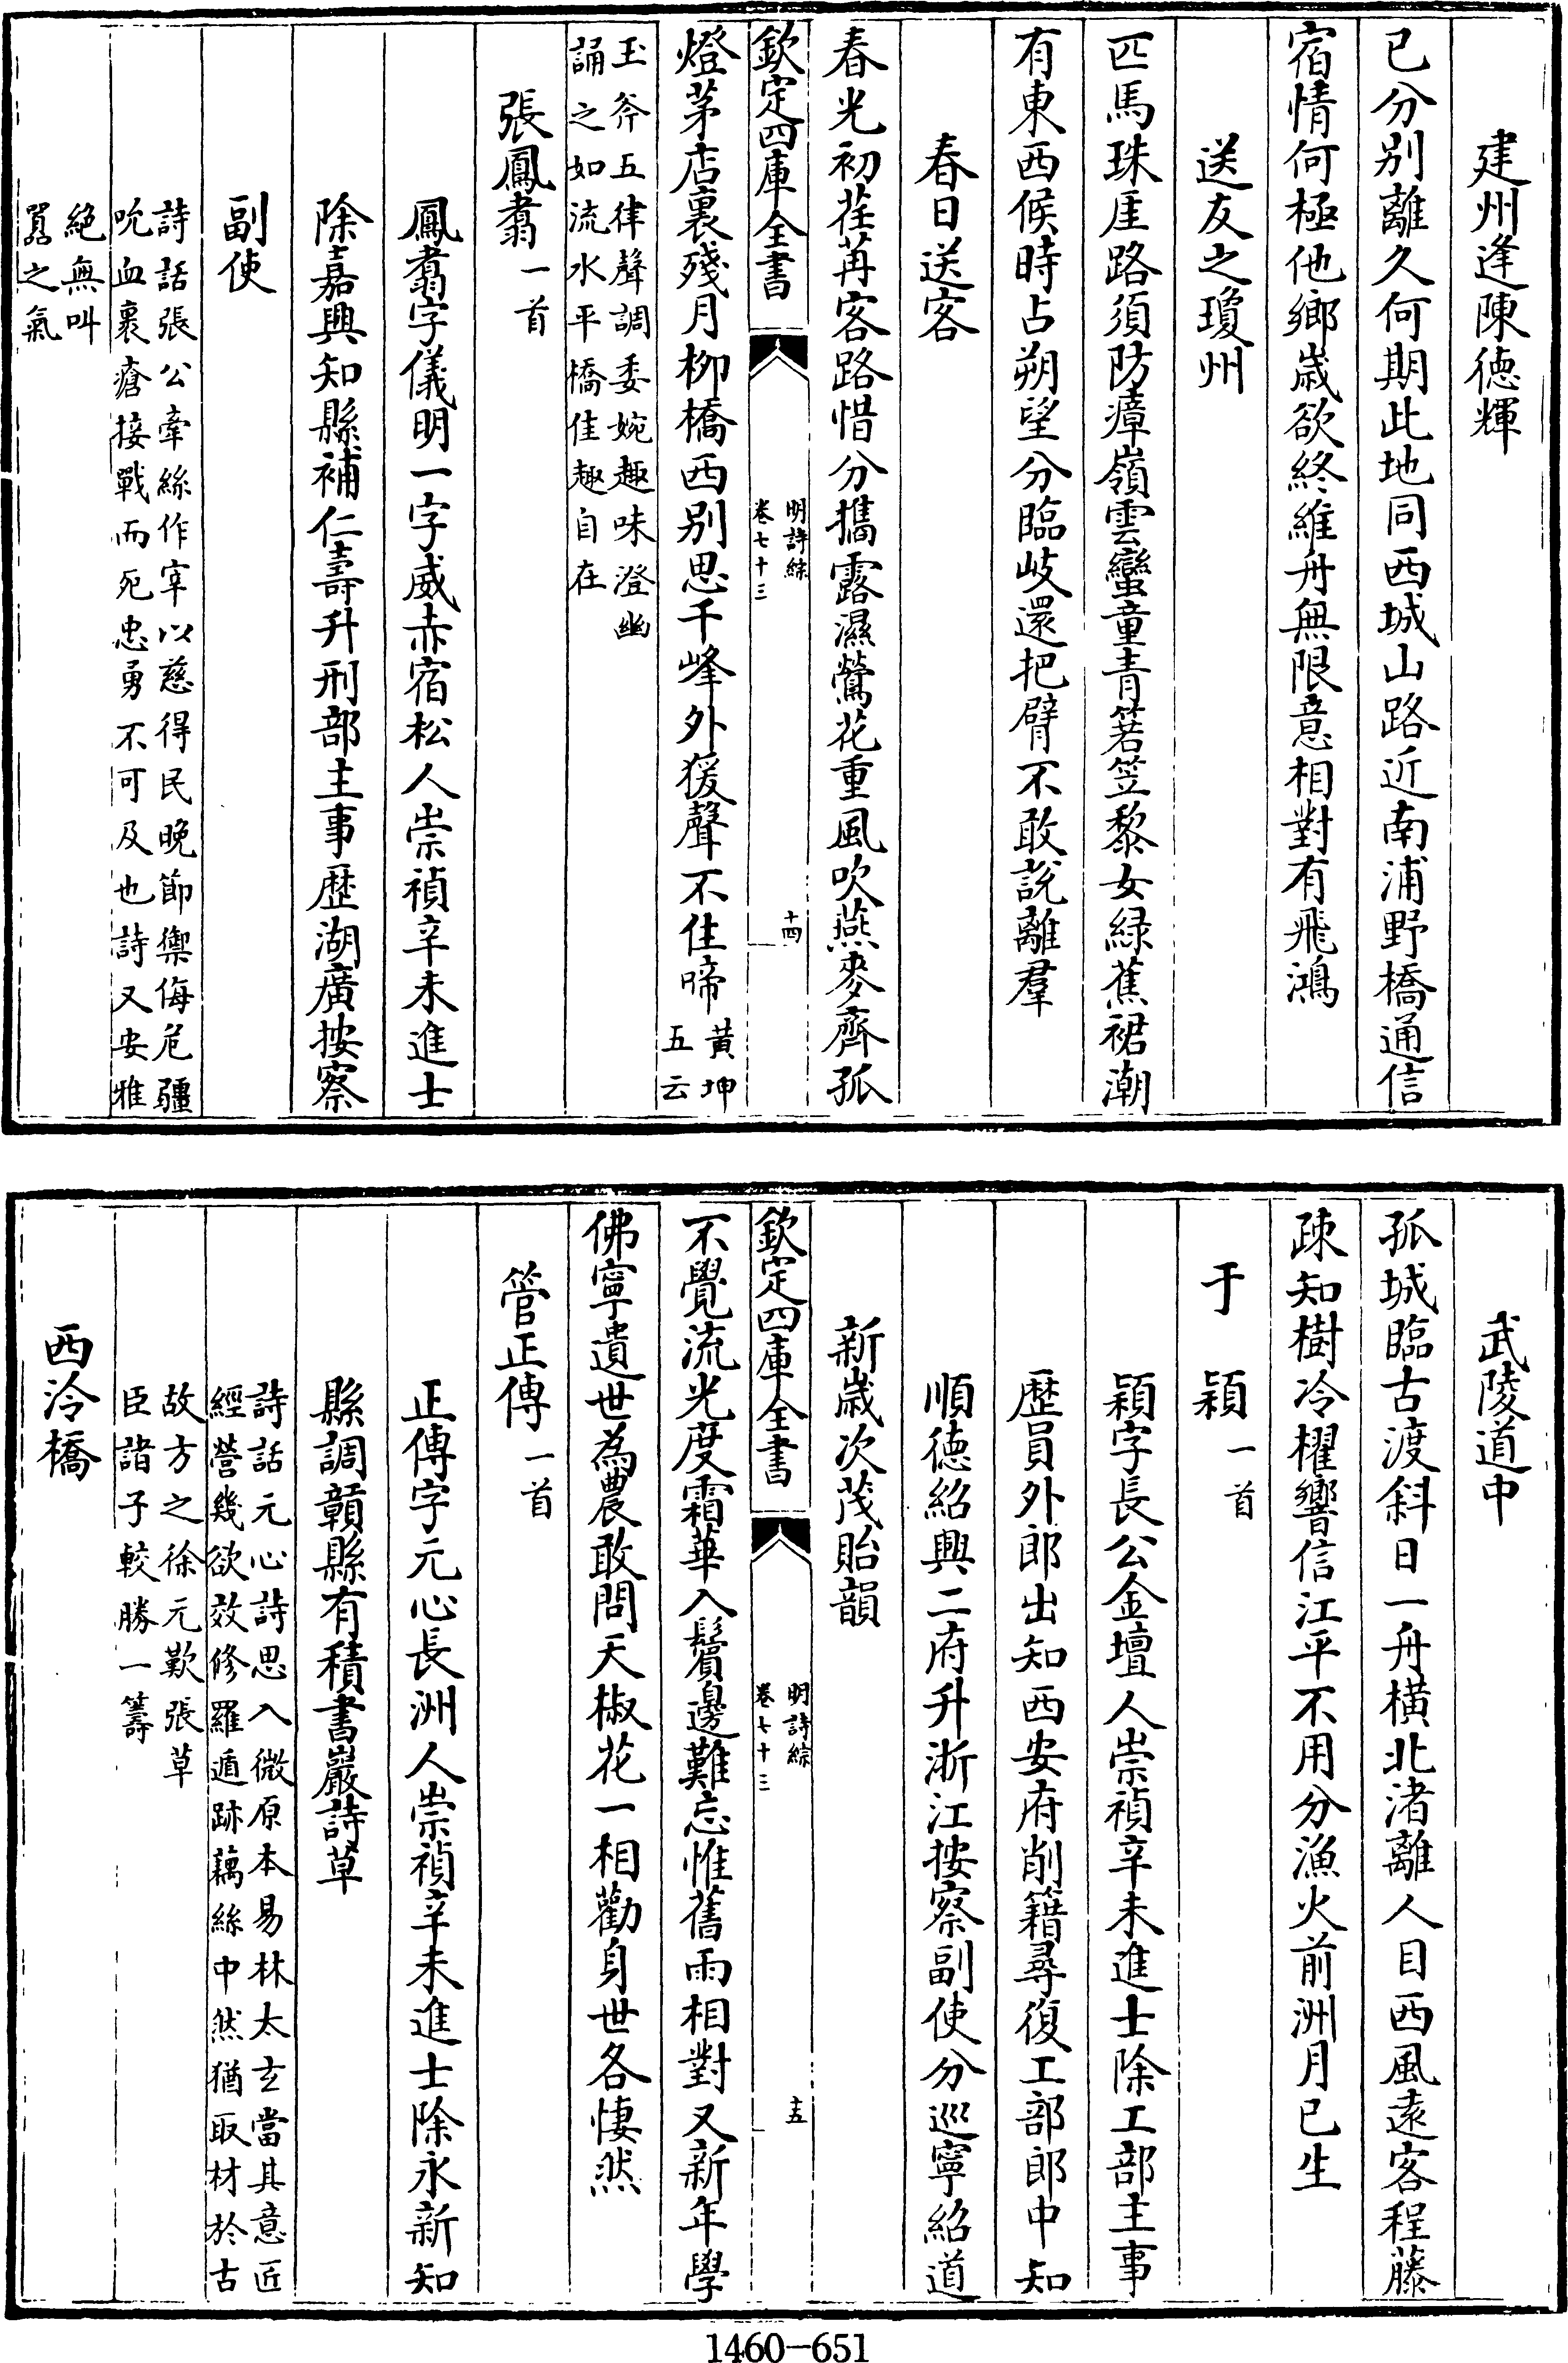 建州逢陳徳輝
已分别離久何期此地同西城山路近南浦野橋通信
宿情何極他鄉歲欲終維舟無限意相對有飛鴻
送友之瓊州
匹馬珠厓路須防瘴嶺雲蠻童青箬笠黎女緑蕉裙潮
有東西候時占朔望分臨岐還把臂不敢説離羣
春日送客
春光初荏苒客路惜分攜露濕鶯花重風吹燕麥齊孤
欽定四庫全書
明詩綜
卷七十三
十四
燈茅店裏殘月柳橋西别思千峰外猨聲不住啼
黄坤
五云
玉斧五律聲調委婉趣味澄幽
誦之如流水平橋佳趣自在
張鳳翥一首
鳳翥字儀明一字威赤宿松人崇禎辛未進士
除嘉興知縣補仁壽升刑部主事歷湖廣按察
副使
詩話張公牽絲作宰以慈得民晚節禦侮危疆
吮血裹瘡接戰而死忠勇不可及也詩又安雅
絶無叫
囂之氣
武陵道中
孤城臨古渡斜日一舟橫北渚離人目西風逺客程藤
疎知樹冷櫂響信江平不用分漁火前洲月已生
于潁一首
潁字長公金壇人崇禎辛未進士除工部主事
歷員外郎出知西安府削籍尋復工部郎中知
順徳紹興二府升浙江按察副使分巡寧紹道
新歲次茂貽韻
欽定四庫全書
明詩綜
卷七十三
十五
不覺流光度霜華入鬢邊難忘惟舊雨相對又新年學
佛寧遺世為農敢問天椒花一相勸身世各悽然
管正傳一首
正傳字元心長洲人崇禎辛未進士除永新知
縣調贛縣有積書巖詩草
詩話元心詩思入微原本易林太玄當其意匠
經營幾欲效修羅遁跡藕絲中然猶取材於古
故方之徐元歎張草
臣諸子較勝一籌
西泠橋
1460-651